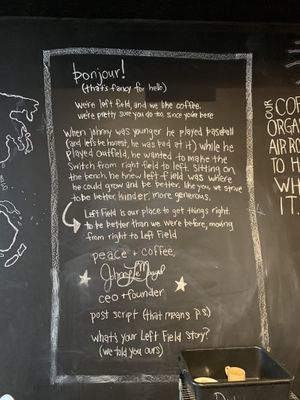 bonjour!
(that's fancy for hello)
we're left field, and we like coffee.
we're pretty sure you do too, since you're here
when johnny was younger he played baseball
(and let's be honest, he was bad at it) while he
played outfield, he wanted to make the
switch from right field to left. Sitting on
the bench, he knew left field was where
he could grow and be better. like you, we strive
to be better, kinder, more generous.
Left Field is our place to get things right.
to be better than we were before, moving
from right to Left Field
peace + coffee,
ceo + founder
post script (that means p.s)
what's your Left Field story?
(we told you ours)
OUR
CO
ORGA
AIR RO
TO H
WH
IT.